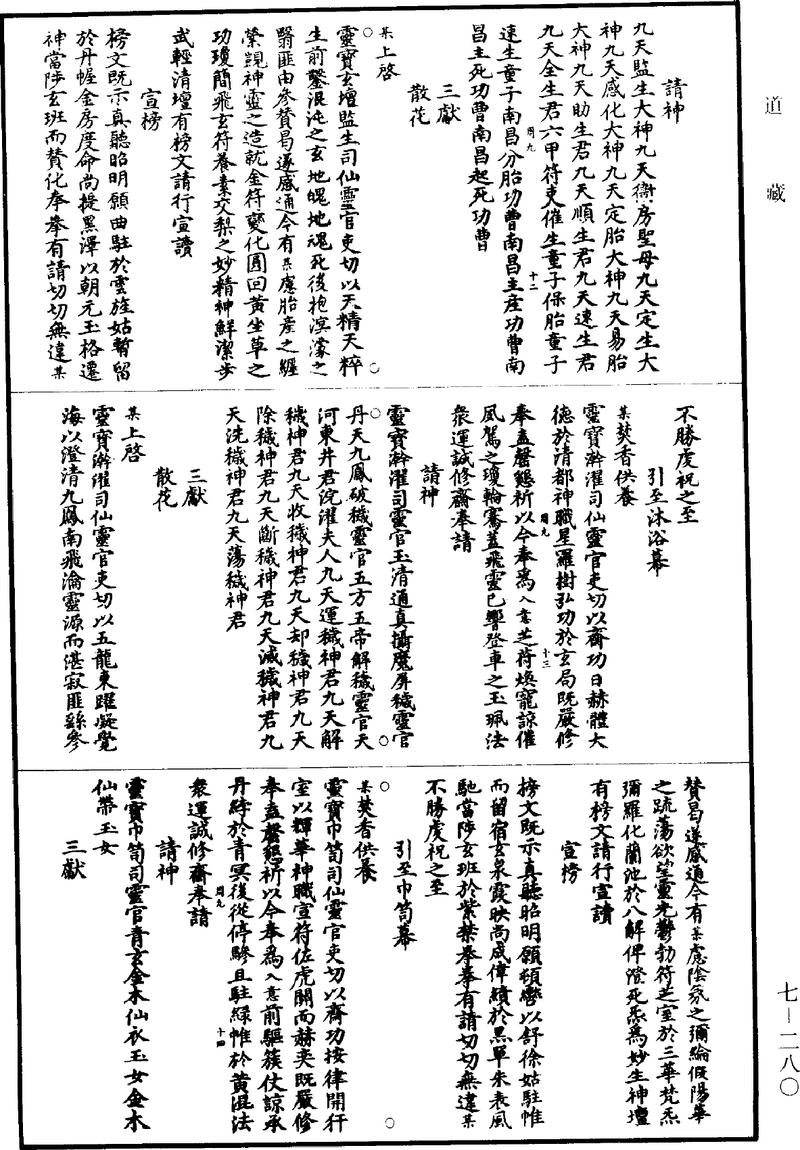 道藏
請神
九天監生大神九天衛房聖母九天定生大
神九天感化大神九天定胎大神九天易胎
大神九天助生君九天順生君九天速生君
九天全生君六甲符吏催生童子保胎童子
速生童子南昌分胎功曹南昌主產功曹南
昌主死功曹南昌起死功曹
三獻
散花
某上啓
靈寶玄壇監生司仙靈官吏切以天精天粹
生前鑿混沌之玄地魄地魂死後抱溟濛之
翳匪由參贊曷遂感通今有某慮胎產之纏
縈覬神靈之造就金符變化圓回黃坐草之
功瓊簡飛玄符養素交梨之妙精神鮮潔步
武輕清壇有榜文請行宣讀
宣榜
榜文既示真聽昭明願曲駐於雲旌姑暫留
於丹幄金房度命尚提黑澤以朝元玉格遷
神當陟玄班而贊化奉拳有請切切無違某
不勝虔祝之至
引至沐浴幕
某焚香供養
靈寶澣濯司仙靈官吏切以齋功日赫體大
德於清都神職星羅樹弘功於玄局既嚴修
奉盍罄懇祈以今奉爲入意芝蕚煥寵諒催
風駕之瓊輪騫蓋飛靈已響登車之玉珮法
衆運誠修齋奉請
請神
靈寶澣濯司靈官玉清通真攝魔屏穢靈官
丹天九鳳破穢靈官五方五帝解穢靈官天
河東井君浣濯夫人九天運穢神君九天解
穢神君九天收穢神君九天却穢神君九天
除穢神君九天斷穢神君九天滅穢神君九
天洗穢神君九天蕩穢神君
三獻
散花
某上啓
靈寶澣濯司仙靈官吏切以五龍東躍凝覺
海以澄清九鳳南飛瀹靈源而湛寂匪繇參
贊曷遂感通今有某慮陰氛之彌綸假陽華
之疏蕩欲望靈光鬱勃符芝室於三華梵炁
彌羅化蘭池於八解俾澄死炁爲妙生神壇
有榜文請行宣讀
宣榜
榜文既示真聽昭明願頓轡以舒徐姑駐帷
而留宿玄泉霞映尚成偉績於黑單朱表風
馳當陟玄班於紫禁拳拳有請切切無違某
不勝虔祝之至
引至巾笥幕
某焚香供養
靈寶巾笥司仙靈官吏切以齋功按律開行
室以輝華神職宣符佐虎關而赫奕既嚴修
奉盍罄懇祈以今奉爲入意前驅簇仗諒承
丹綍於青冥後從停驂且駐綠帷於黃混法
衆運誠修齋奉請
請神
靈寶巾笥司靈官青玄金木仙衣玉女金木
仙帶玉女
三獻
周九
十二
周九
十三
周九
十四
七—二八〇